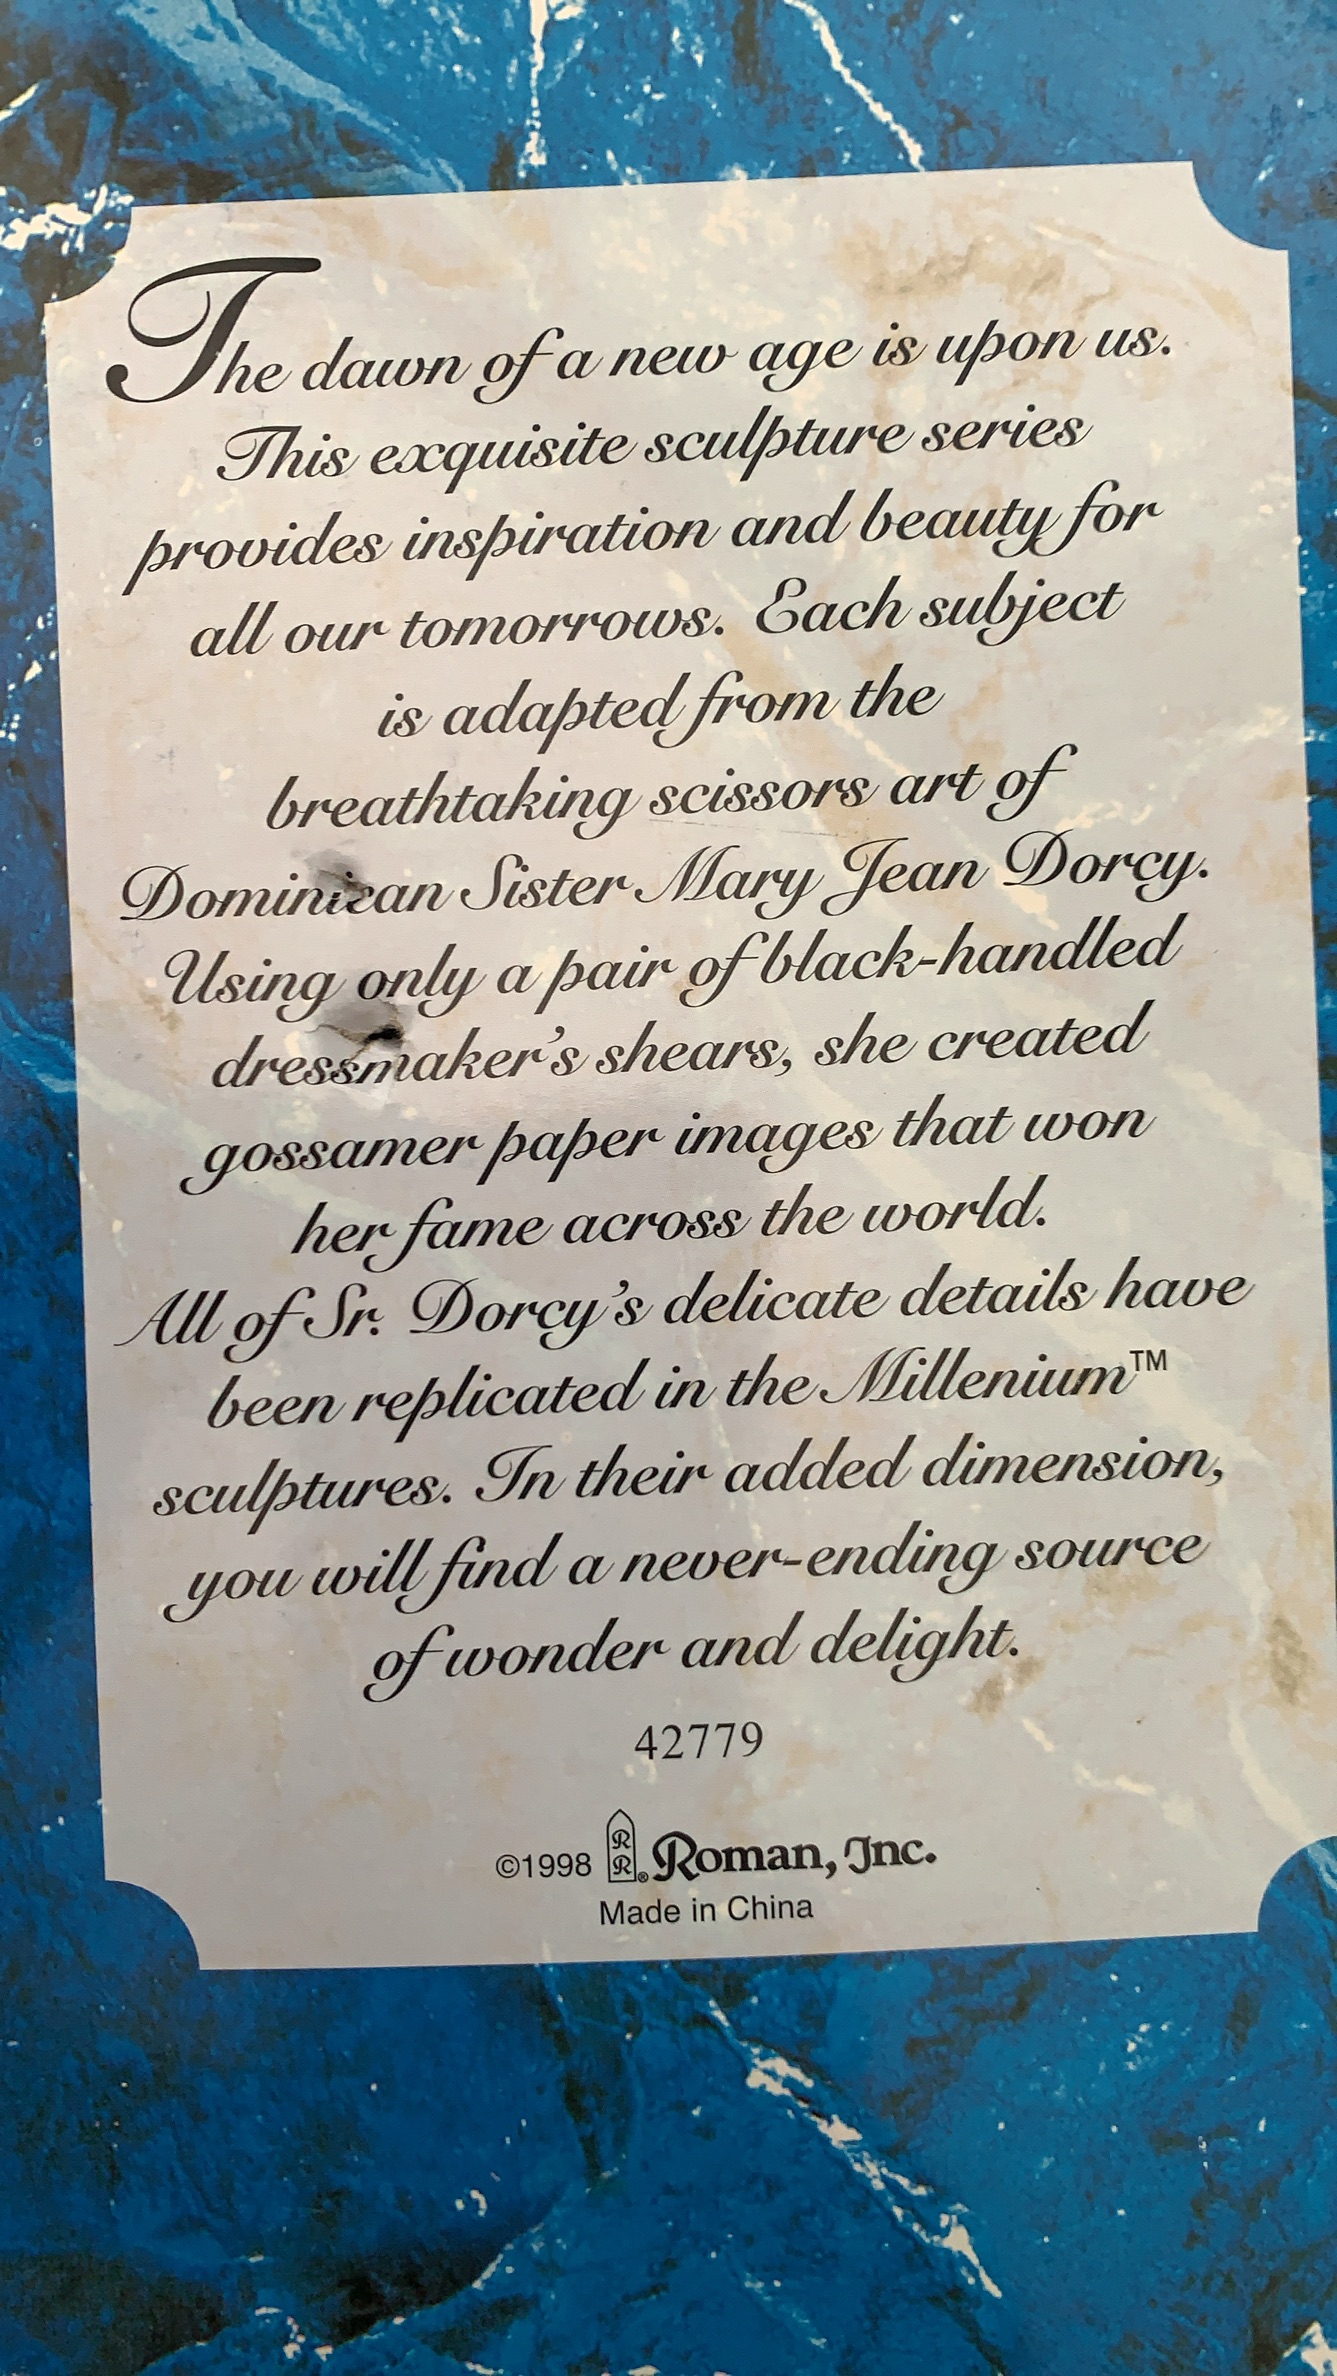 The dawn of a new age is upon us.
This exquisite sculpture series
provides inspiration and beauty for
all our tomorrows. Each subject
is adapted from the
breathtaking scissors art of
Dominican Sister Mary Jean Dorcy.
Using only a pair of black-handled
dressmaker's shears, she created
gossamer paper images that won
her fame across the world.
All of Sr. Dorcy's delicate details have
been replicated in the Millenium™
sculptures. In their added dimension,
you will find a never-ending source
of wonder and delight.
42779
©1998 R R ® Roman, Inc.
Made in China